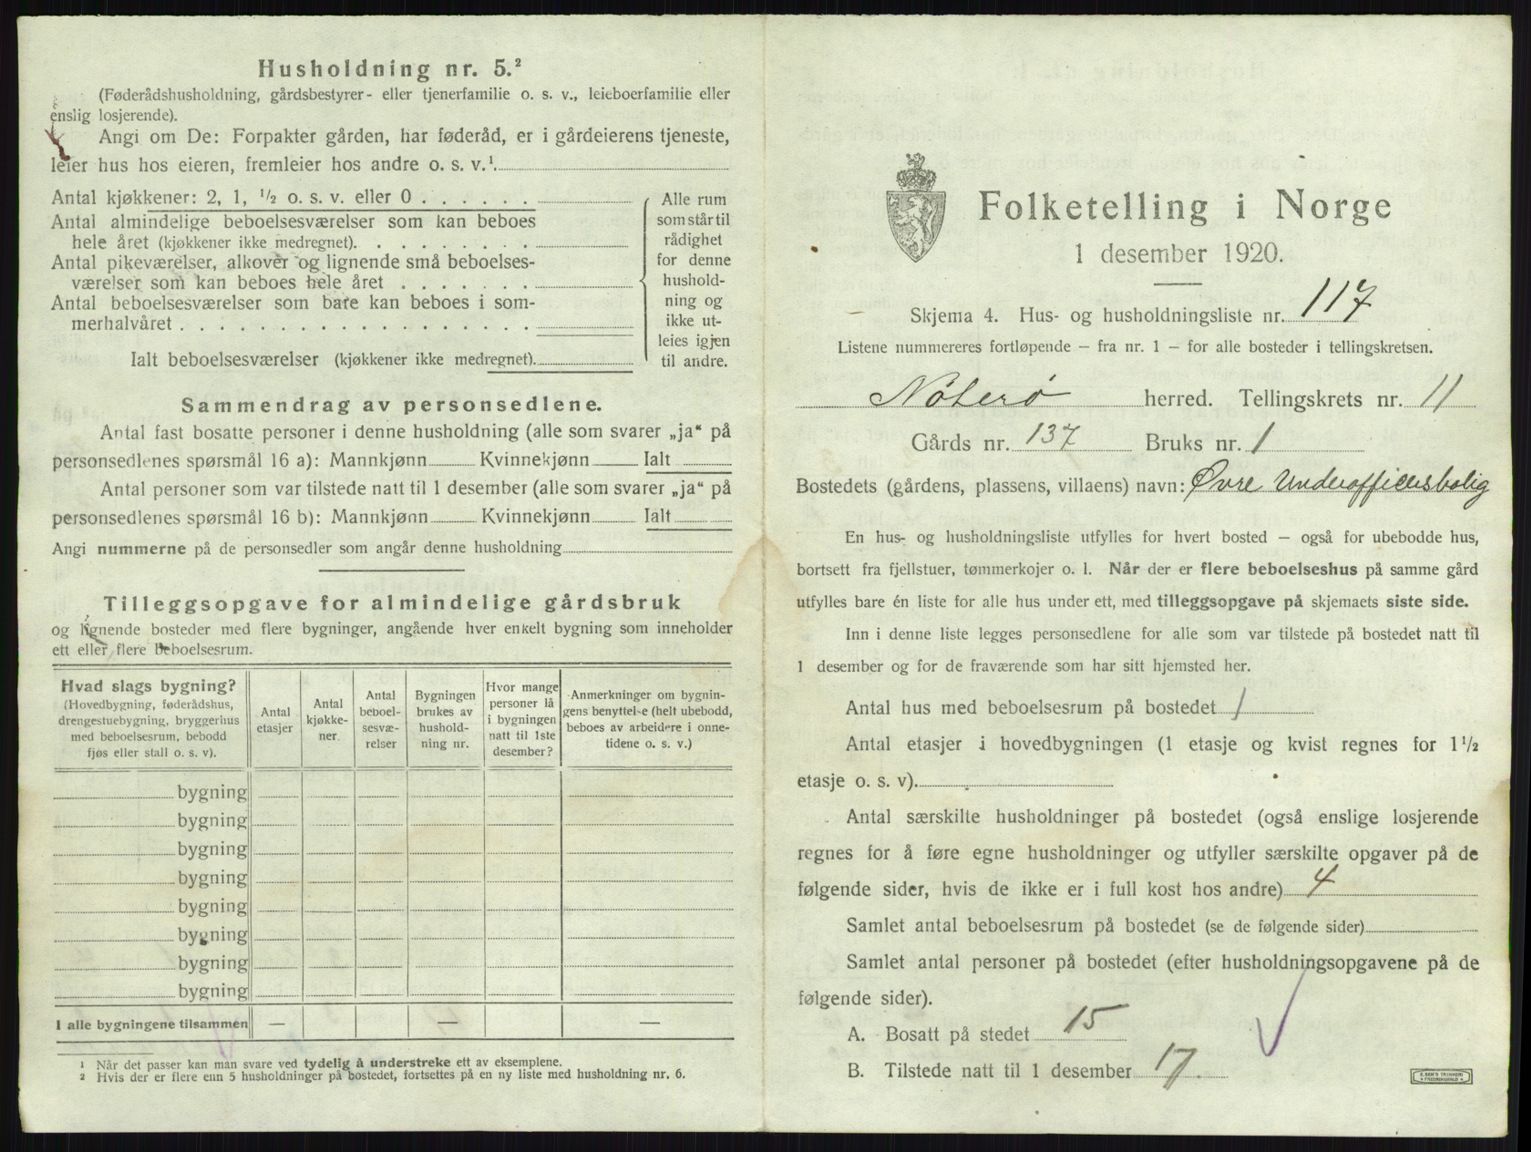 Husholdning nr. 5.²
(Føderådshusholdning, gårdsbestyrer- eller tjenerfamilie o. s. v., leieboerfamilie eller
enslig losjerende).
Angi om De: Forpakter gården, har føderåd, er i gårdeierens tjeneste,
leier hus hos eieren, fremleier hos andre o. s. v.¹
Antal kjøkkener: 2, 1, ½ o. s. v. eller 0
Antal almindelige beboelsesværelser som kan beboes
hele året (kjøkkener ikke medregnet)
Antal pikeværelser, alkover og lignende små beboelses-
værelser som kan beboes hele året
Antal beboelsesværelser som bare kan beboes i som-
merhalvåret
Ialt beboelsesværelser (kjøkkener ikke medregnet)
Alle rum
som står til
rådighet
for denne
hushold-
ning og
ikke ut-
leies igjen
til andre.
Sammendrag av personsedlene.
Antal fast bosatte personer i denne husholdning (alle som svarer „ja“ på
personsedlenes spørsmål 16 a): Mannkjønn Kvinnekjønn Ialt
Antal personer som var tilstede natt til 1 desember (alle som svarer „ja“ på
personsedlenes spørsmål 16 b): Mannkjønn Kvinnekjønn Ialt
Angi nummerne på de personsedler som angår denne husholdning
Tilleggsopgave for almindelige gårdsbruk
og lignende bosteder med flere bygninger, angående hver enkelt bygning som inneholder
ett eller flere beboelsesrum.
Hvad slags bygning?
(Hovedbygning, føderådshus,
drengestuebygning, bryggerhus
med beboelsesrum, bebodd
fjøs eller stall o. s. v).
Antal
etasjer
Antal
kjøkke-
ner
Antal
beboel-
sesvæ-
relser
Bygningen
brukes av
hushold-
ning nr.
Hvor mange
personer lå
i bygningen
natt til 1ste
desember?
Anmerkninger om bygnin-
gens benyttelse (helt ubebodd,
beboes av arbeidere i onne-
tidene o. s. v.)
bygning
bygning
bygning
bygning
bygning
bygning
bygning
bygning
I alle bygningene tilsammen — — —
¹ Når det passer kan man svare ved tydelig å understreke ett av eksemplene.
² Hvis der er flere enn 5 husholdninger på bostedet, fortsettes på en ny liste med husholdning nr. 6.
Folketelling i Norge
1 desember 1920.
Skjema 4. Hus- og husholdningsliste nr. 117
Listene nummereres fortløpende – fra nr. 1 – for alle bosteder i tellingskretsen.
Nøterø herred. Tellingskrets nr. 11
Gårds nr. 137 Bruks nr. 1
Bostedets (gårdens, plassens, villaens) navn: Øvre Underofficersbolig
En hus- og husholdningsliste utfylles for hvert bosted – også for ubebodde hus,
bortsett fra fjellstuer, tømmerkojer o. l. Når der er flere beboelseshus på samme gård
utfylles bare én liste for alle hus under ett, med tilleggsopgave på skjemaets siste side.
Inn i denne liste legges personsedlene for alle som var tilstede på bostedet natt til
1 desember og for de fraværende som har sitt hjemsted her.
Antal hus med beboelsesrum på bostedet 1
Antal etasjer i hovedbygningen (1 etasje og kvist regnes for 1½
etasje o. s. v).
Antal særskilte husholdninger på bostedet (også enslige losjerende
regnes for å føre egne husholdninger og utfyller særskilte opgaver på de
følgende sider, hvis de ikke er i full kost hos andre) 4
Samlet antal beboelsesrum på bostedet (se de følgende sider)
Samlet antal personer på bostedet (efter husholdningsopgavene på de
følgende sider).
A. Bosatt på stedet 15
B. Tilstede natt til 1 desember 17